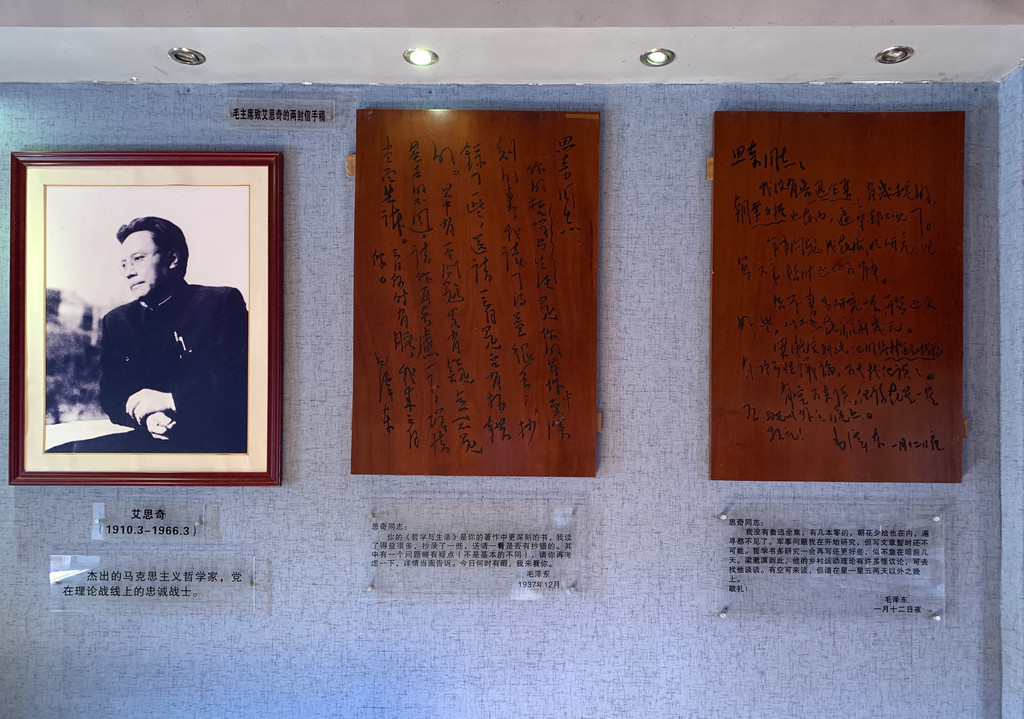 毛主席致艾思奇的两封信手稿
艾思奇
(1910.3-1966.3)
杰出的马克思主义哲学家，党
在理论战线上的忠诚战士。
思奇同志：
你的哲学与生活是你的著作中更深
刻的书，我读了得益很多，抄
录了一些，送请一看是否有抄错
的。其中有一个问题略有疑点（不是
基本的不同），请你再考虑一下，详情
当面告诉。今日何时有暇，我来看
你。
毛泽东
思奇同志：
你的《哲学与生活》是你的著作中更深刻的书，我读
了得益很多，抄录了一些，送请一看是否有抄错的。其
中有一个问题略有疑点（不是基本的不同），请你再考
虑一下，详情当面告诉。今日何时有暇，我来看你。
毛泽东
1937年12月
思奇同志：
我没有鲁迅全集，有几本零的，
朝花夕拾也在内，遍寻都不见了。
军事问题我在开始研究，但
写文章暂时还不可能。
哲学书多研究一会再写还更
好些，似不急在眼前几天。
梁漱溟到此，他的乡村运动理论
有许多怪议论，可去找他谈谈。
有空可来谈，但请在星一星
五两天以外之晚上。
敬礼！
毛泽东 一月十二日夜
思奇同志：
我没有鲁迅全集，有几本零的，朝花夕拾也在内，遍
寻都不见了。军事问题我在开始研究，但写文章暂时还不
可能。哲学书多研究一会再写还更好些，似不急在眼前几
天。梁漱溟到此，他的乡村运动理论有许多怪议论，可去
找他谈谈。有空可来谈，但请在星一星五两天以外之晚
上。
敬礼！
毛泽东
一月十二日夜